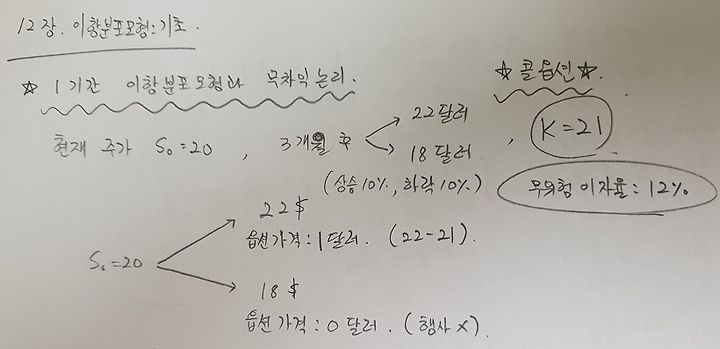 12장. 이항분포모형:기초.
☆ 1기간 이항분포모형과 무차익 논리.
☆콜옵션☆.
현재 주가 S₀=20, 3개월 후
22달러
18달러
, K=21
(상승10%, 하락10%)
무위험 이자율: 12%
S₀=20
22$
옵션가격: 1달러. (22-21).
18$
옵션가격: 0달러. (행사 X).